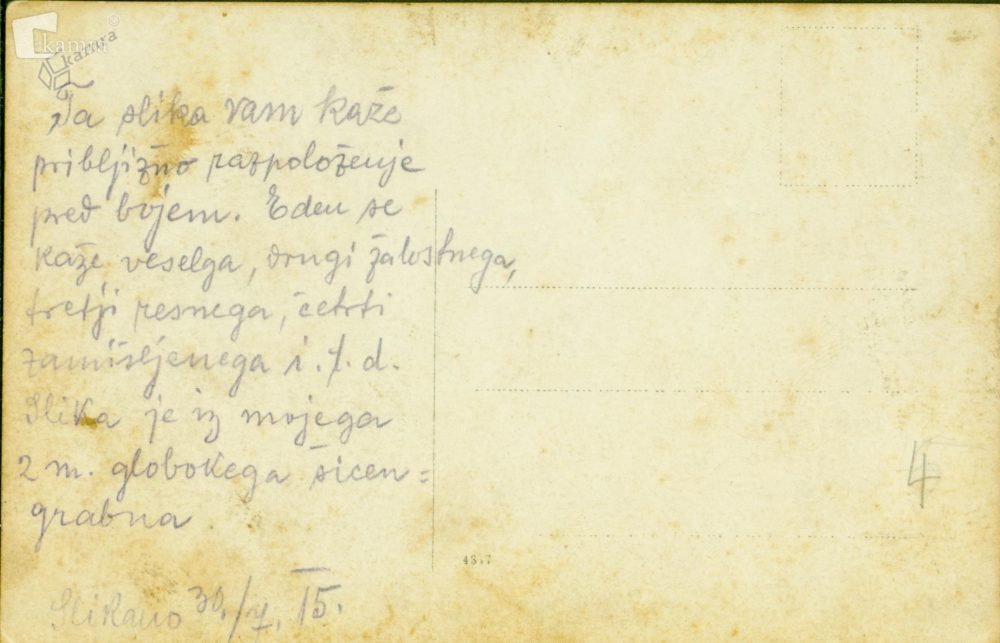 kamra
kamra
Ta slika vam kaže
približno razpoloženje
pred bojem. Eden se
kaže veselga, drugi žalostnega,
tretji resnega, četrti
zamišljenega i.t.d.
Slika je iz mojega
2 m. globokega šicen=
grabna
Slikano 30./V. 15.
4